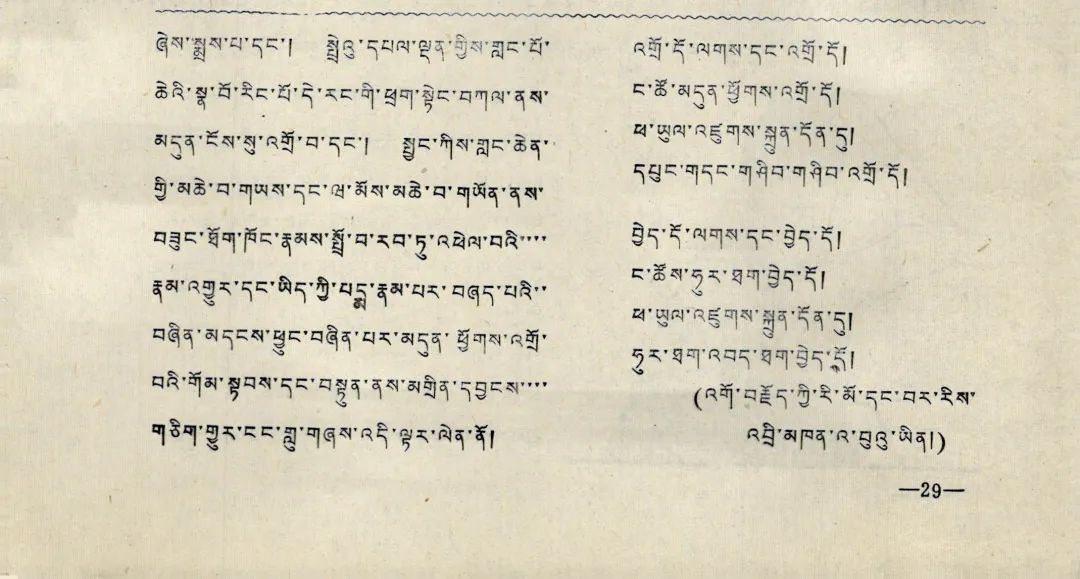 ཞེས་སྨྲས་པ་དང་། སྤྲེའུ་དཔལ་ལྡན་གྱིས་གླང་པོ་
ཆེའི་སྣ་བོ་རིང་པོ་དེ་རང་གི་ཕྲག་སྟེང་བཀལ་ནས་
མདུན་ངོས་སུ་འགྲོ་བ་དང་། སྤྱང་ཀིས་གླང་ཆེན་
གྱི་མཆེ་བ་གཡས་དང་ཝ་མོས་མཆེ་བ་གཡོན་ནས་
བཟུང་ཐོག་ཁོང་རྣམས་སྤྲོ་བ་རབ་ཏུ་འཕེལ་བའི་་་་
རྣམ་འགྱུར་དང་ཡིད་ཀྱི་པདྨ་རྣམ་པར་བཞད་པའི་་
བཞིན་མདངས་ཕྱུང་བཞིན་པར་མདུན་ཕྱོགས་འགྲོ་
བའི་གོམ་སྟབས་དང་བསྟུན་ནས་མགྲིན་དབྱངས་་་་
གཅིག་གྱུར་ངང་གླུ་གཞས་འདི་ལྟར་ལེན་ནོ།
འགྲོ་དོ་ལགས་དང་འགྲོ་དོ།
ང་ཚོ་མདུན་ཕྱོགས་འགྲོ་དོ།
ཕ་ཡུལ་འཛུགས་སྐྲུན་དོན་དུ།
དཔུང་གདང་གཤིབ་གཤིབ་འགྲོ་དོ།
བྱེད་དོ་ལགས་དང་བྱེད་དོ།
ང་ཚོས་ཧུར་ཐག་བྱེད་དོ།
ཕ་ཡུལ་འཛུགས་སྐྲུན་དོན་དུ།
ཧུར་ཐག་འབད་ཐག་བྱེད་དོ།
(འགོ་བརྗོད་ཀྱི་རི་མོ་དང་བར་རིས་
འབྲི་མཁན་འ་བུའུ་ཡིན།)
—29—